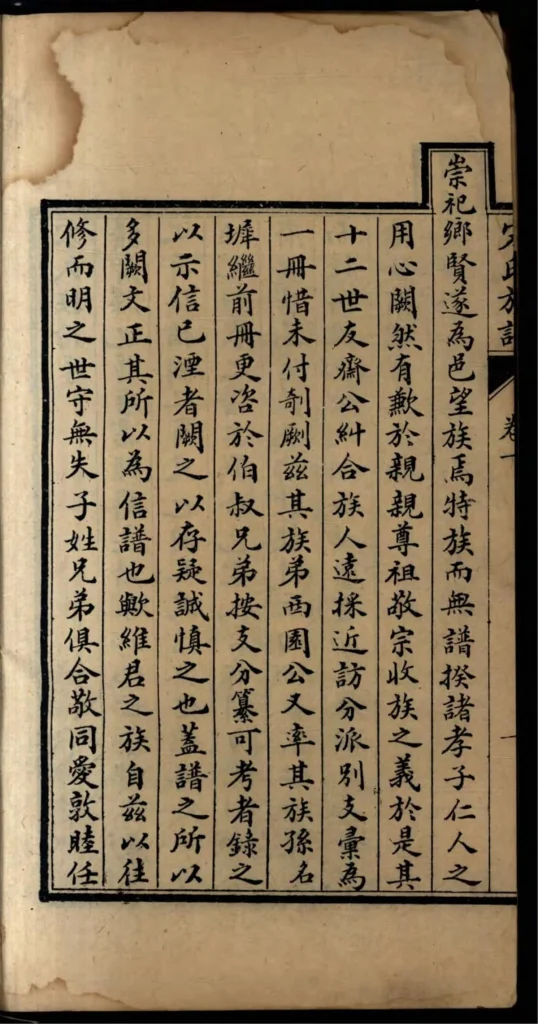 氏族譜 卷一
崇祀鄉賢遂為邑望族焉特族而無譜揆諸孝子仁人之
用心闕然有歉於親親尊祖敬宗收族之義於是其
十二世友齋公糾合族人遠採近訪分派別支彙為
一冊惜未付剞劂茲其族弟西園公又率其族孫名
墀繼前冊更咨於伯叔兄弟按支分纂可考者錄之
以示信已湮者闕之以存疑誠慎之也蓋譜之所以
多闕文正其所以為信譜也歟維君之族自茲以往
修而明之世守無失子姓兄弟俱合敬同愛敦睦任